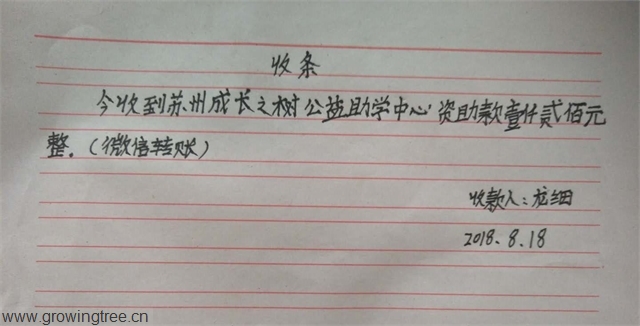 收条
今收到苏州成长之树公益助学中心资助款壹仟贰佰元
整.(微信转账)
收款人:龙细
2018.8.18
www.growingtree.cn